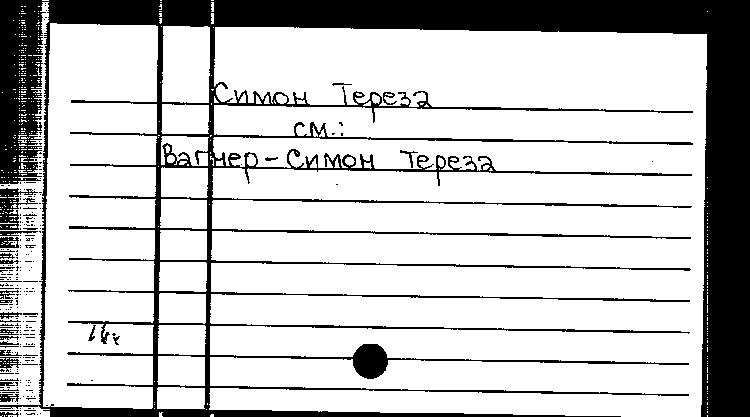 Симон Тереза
см.:
Вагнер-Симон Тереза